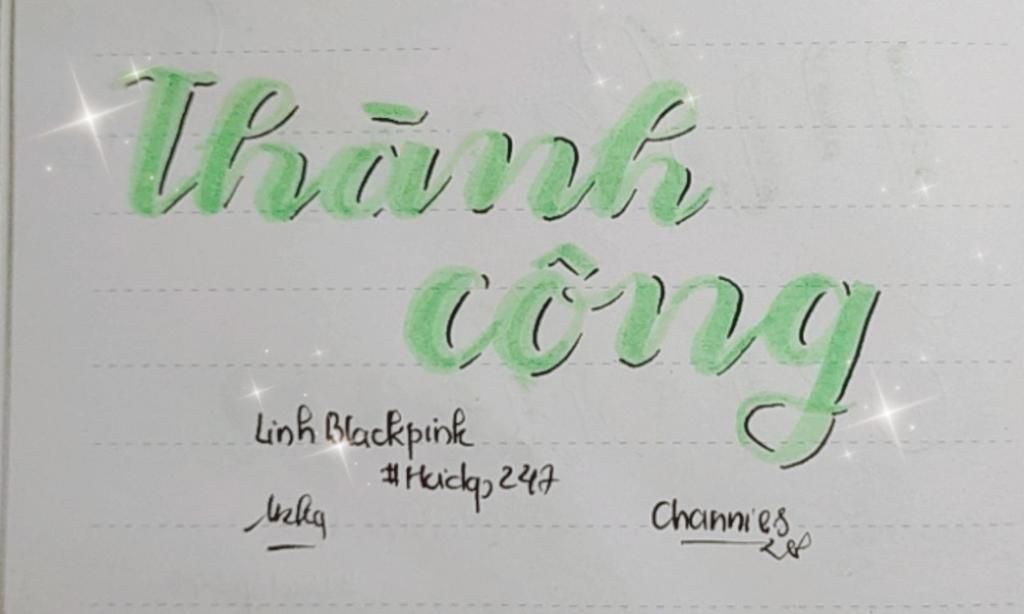 Thành
công
Linh Blackpink
Channies